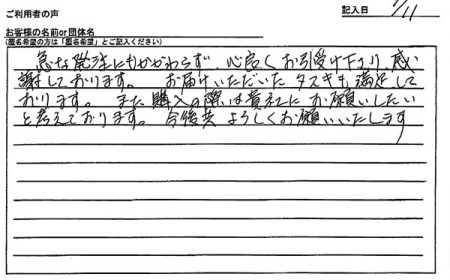 ご利用者の声
記入日 7/11
お客様の名前or団体名
(匿名希望の方は「匿名希望」とご記入ください)
急な発注にもかかわらず、心良くお引受け下さり、感
謝しております。 お届けいただいたタスキも満足して
おります。 また購入の際は貴社にお願いしたい
と考えております。今後共よろしくお願いいたします